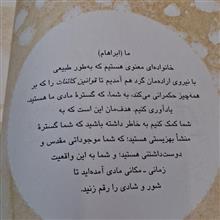 ما (ابراهام)
خانواده‌ای معنوی هستیم که به‌طور طبیعی
با نیروی اراده‌مان گرد هم آمدیم تا قوانین کائنات را که بر
همه‌چیز حکمرانی می‌کند، به شما، که گسترهٔ مادی ما هستید،
یادآوری کنیم. هدف‌مان این است که به
شما کمک کنیم به خاطر داشته باشید که شما گسترهٔ
منشأ بهزیستی هستید؛ که شما موجوداتی مقدس و
دوست‌داشتنی هستید؛ و شما به این واقعیت
زمانی - مکانی مادی آمده‌اید تا
شور و شادی را رقم زنید.